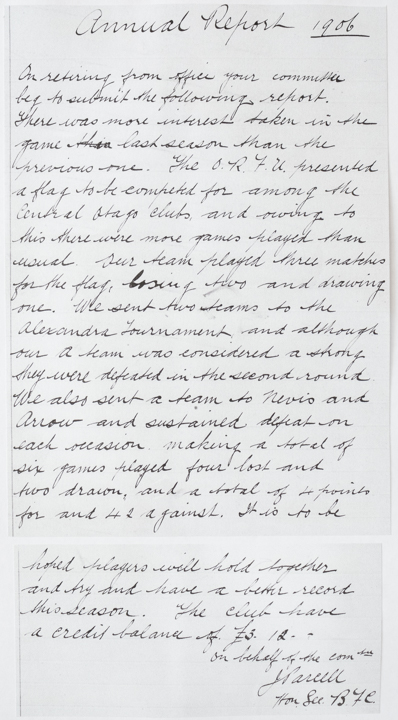 Annual Report 1906
On retiring from office your committee
beg to submit the following report.
There was more interest taken in the
game last season than the
previous one. The O.R.F.U. presented
a flag to be competed for among the
Central Otago clubs and owing to
this there were more games played than
usual. Our team played three matches
for the flag, losing two and drawing
one. We sent two teams to the
Alexandra Tournament and although
our A team was considered a strong
they were defeated in the second round
We also sent a team to Nevis and
Arrow and sustained defeat on
each occasion making a total of
six games played four lost and
two drawn, and a total of 4 points
for and 42 against. It is to be
hoped players will hold together
and try and have a better record
this season. The club have
a credit balance of £3. 12. -
On behalf of the com tee
J Parcell
Hon Sec. B F C.